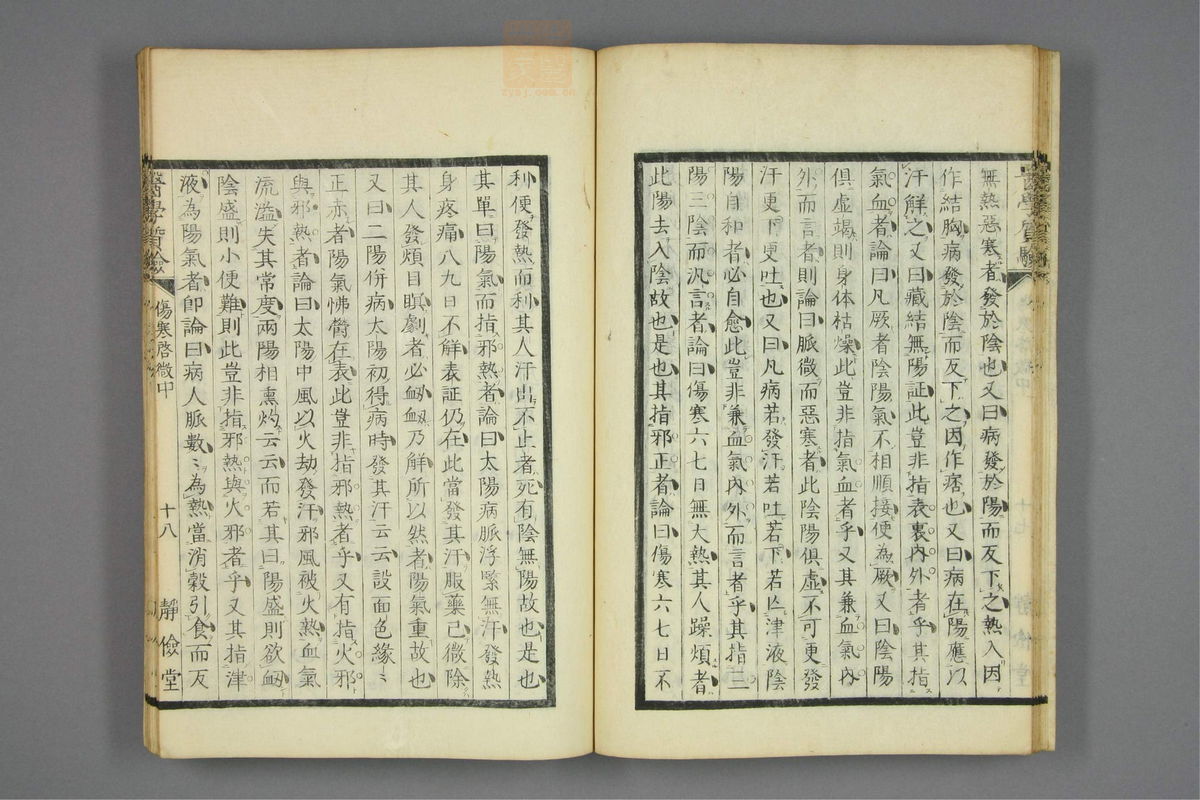 無熱惡寒者發於陰也又曰病發於陽而反下之熱入因
作結胸病發於陰而反下之因作痞也又曰病在陽應以
汗解之又曰藏結無陽証此豈非指表裏內外者乎其指
氣血者論曰凡厥者陰陽氣不相順接便為厥又曰陰陽
俱虛竭則身体枯燥此豈非指氣血者乎又其兼血氣內
外而言者則論曰脈微而惡寒者此陰陽俱虛不可更發
汗更下更吐也又曰凡病若發汗若吐若下若亡津液陰
陽自和者必自愈此豈非兼血氣內外而言者乎其指三
陽三陰而汎言者論曰傷寒六七日無大熱其人躁煩者
此陽去入陰故也是也其指邪正者論曰傷寒六七日不
利便發熱而利其人汗出不止者死有陰無陽故也是也
其單曰陽氣而指邪熱者論曰太陽病脈浮緊無汗發熱
身疼痛八九日不解表証仍在此當發其汗服藥已微除
其人發煩目瞑劇者必衂衂乃解所以然者陽氣重故也
又曰二陽併病太陽初得病時發其汗云云設面色緣〻
正赤者陽氣怫欎在表此豈非指邪熱者乎又有指火邪
與邪熱者論曰太陽中風以火劫發汗邪風被火熱血氣
流溢失其常度兩陽相熏灼云云而若其曰陽盛則欲衂
陰盛則小便難則此豈非指邪熱與火邪者乎又其指津
液為陽氣者卽論曰病人脈數〻為熱當消穀引食而反
醫學質驗
傷寒啓微中
十八
靜儉堂